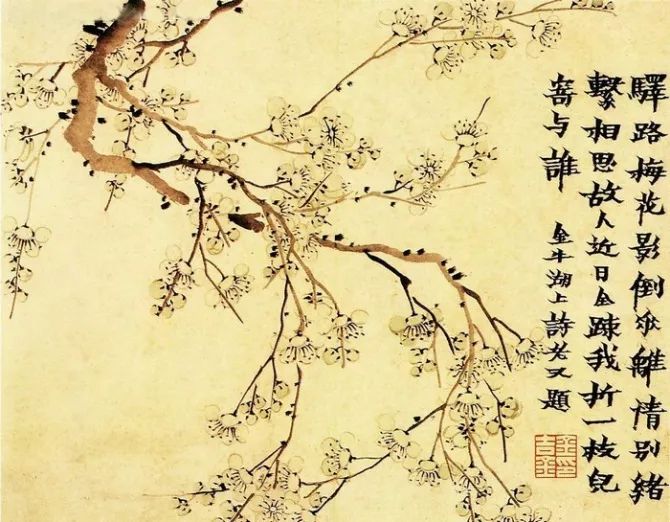 驛路梅花影倒垂離情別緒
繫相思故人近日全踈我折一枝兒
寄与誰
金牛湖上詩老又題
金印
吉金